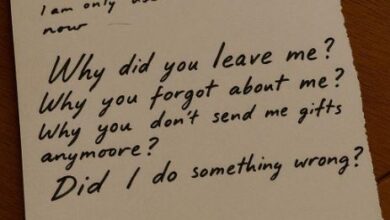 I am only
now
Why did you leave me?
Why you forgot about me?
Why you don't send me gifts
anymoore?
Did I do something wrong?